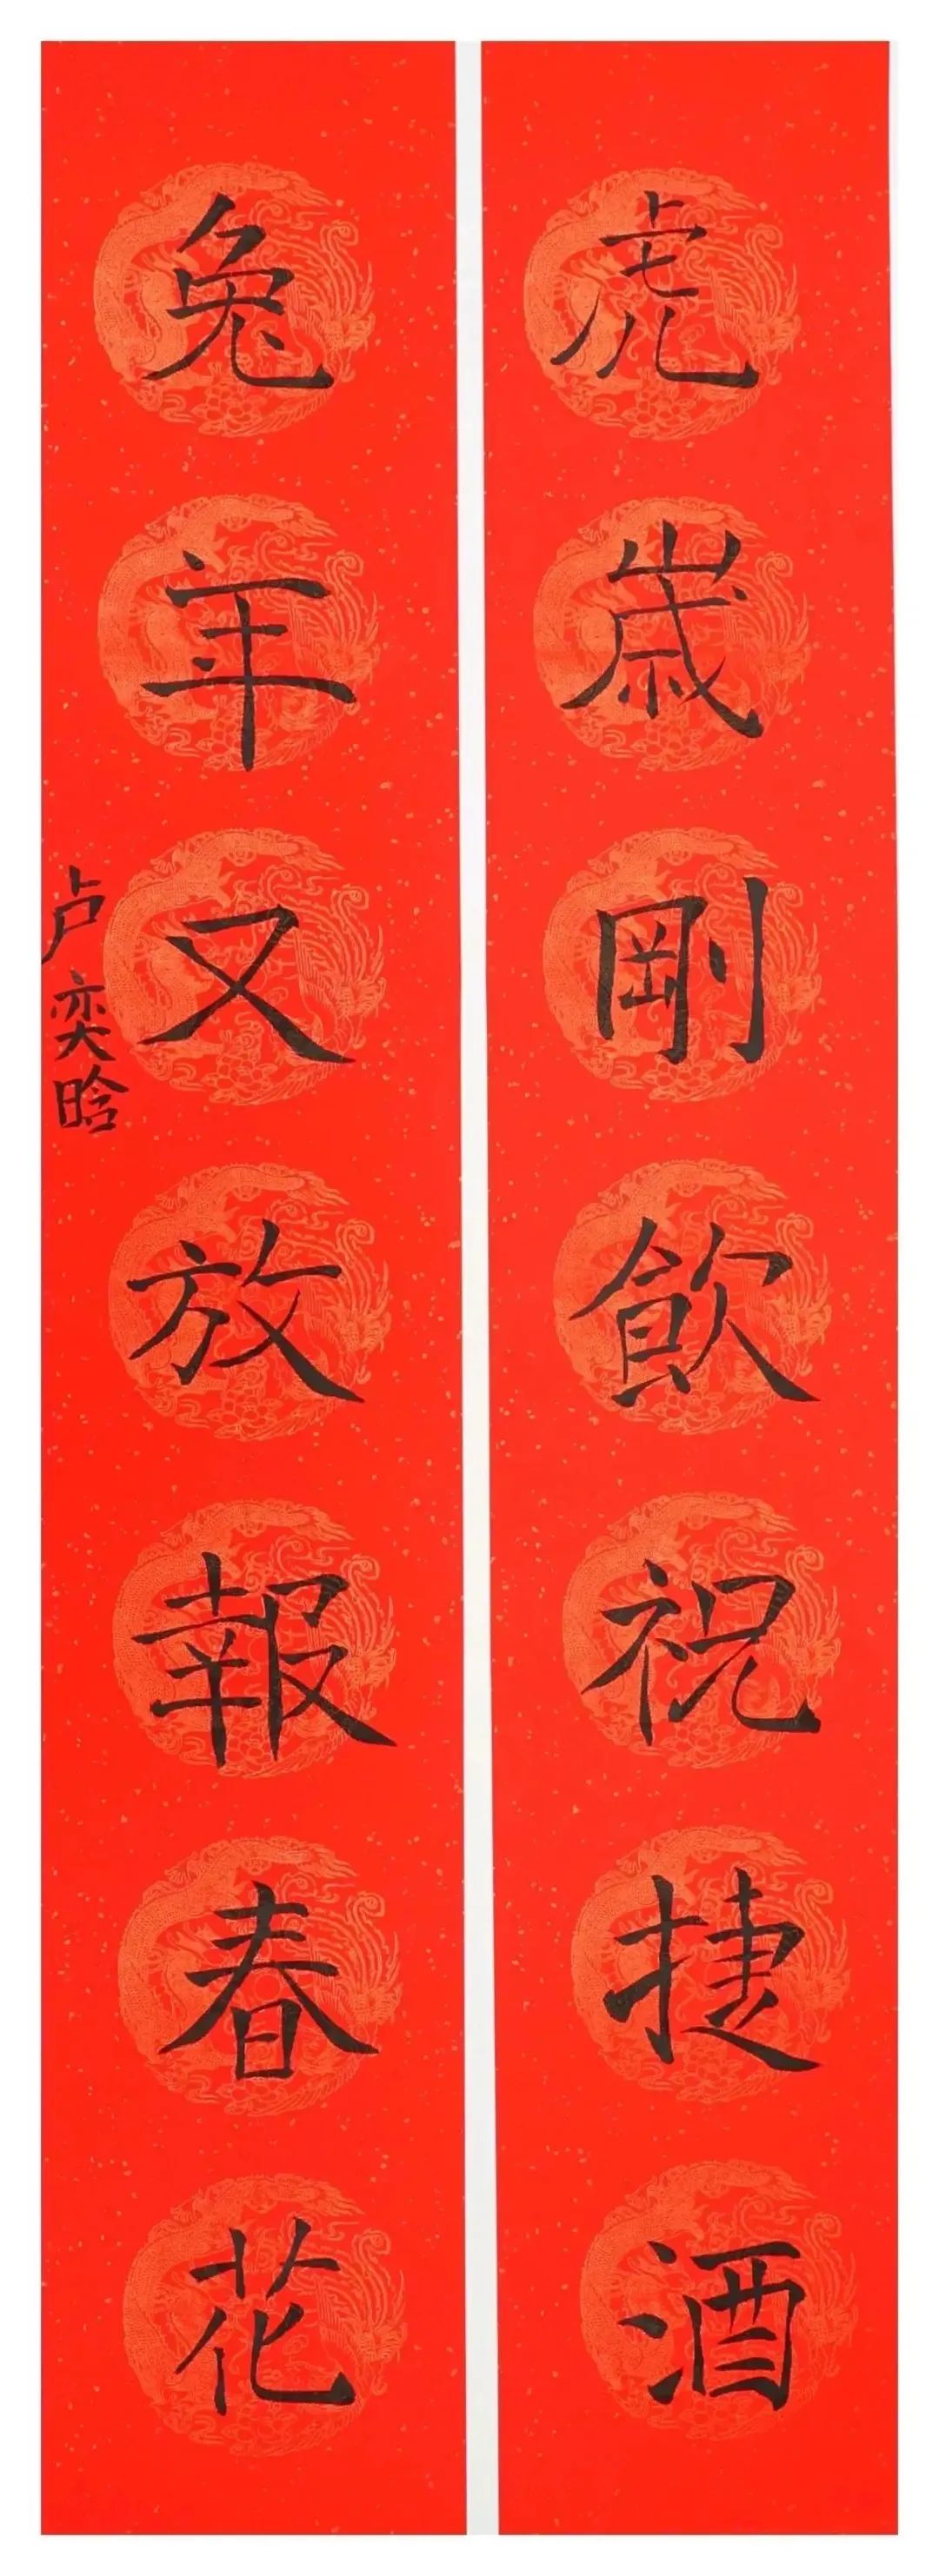 虎歳剛飲祝捷酒
兔年又放報春花
卢奕晗